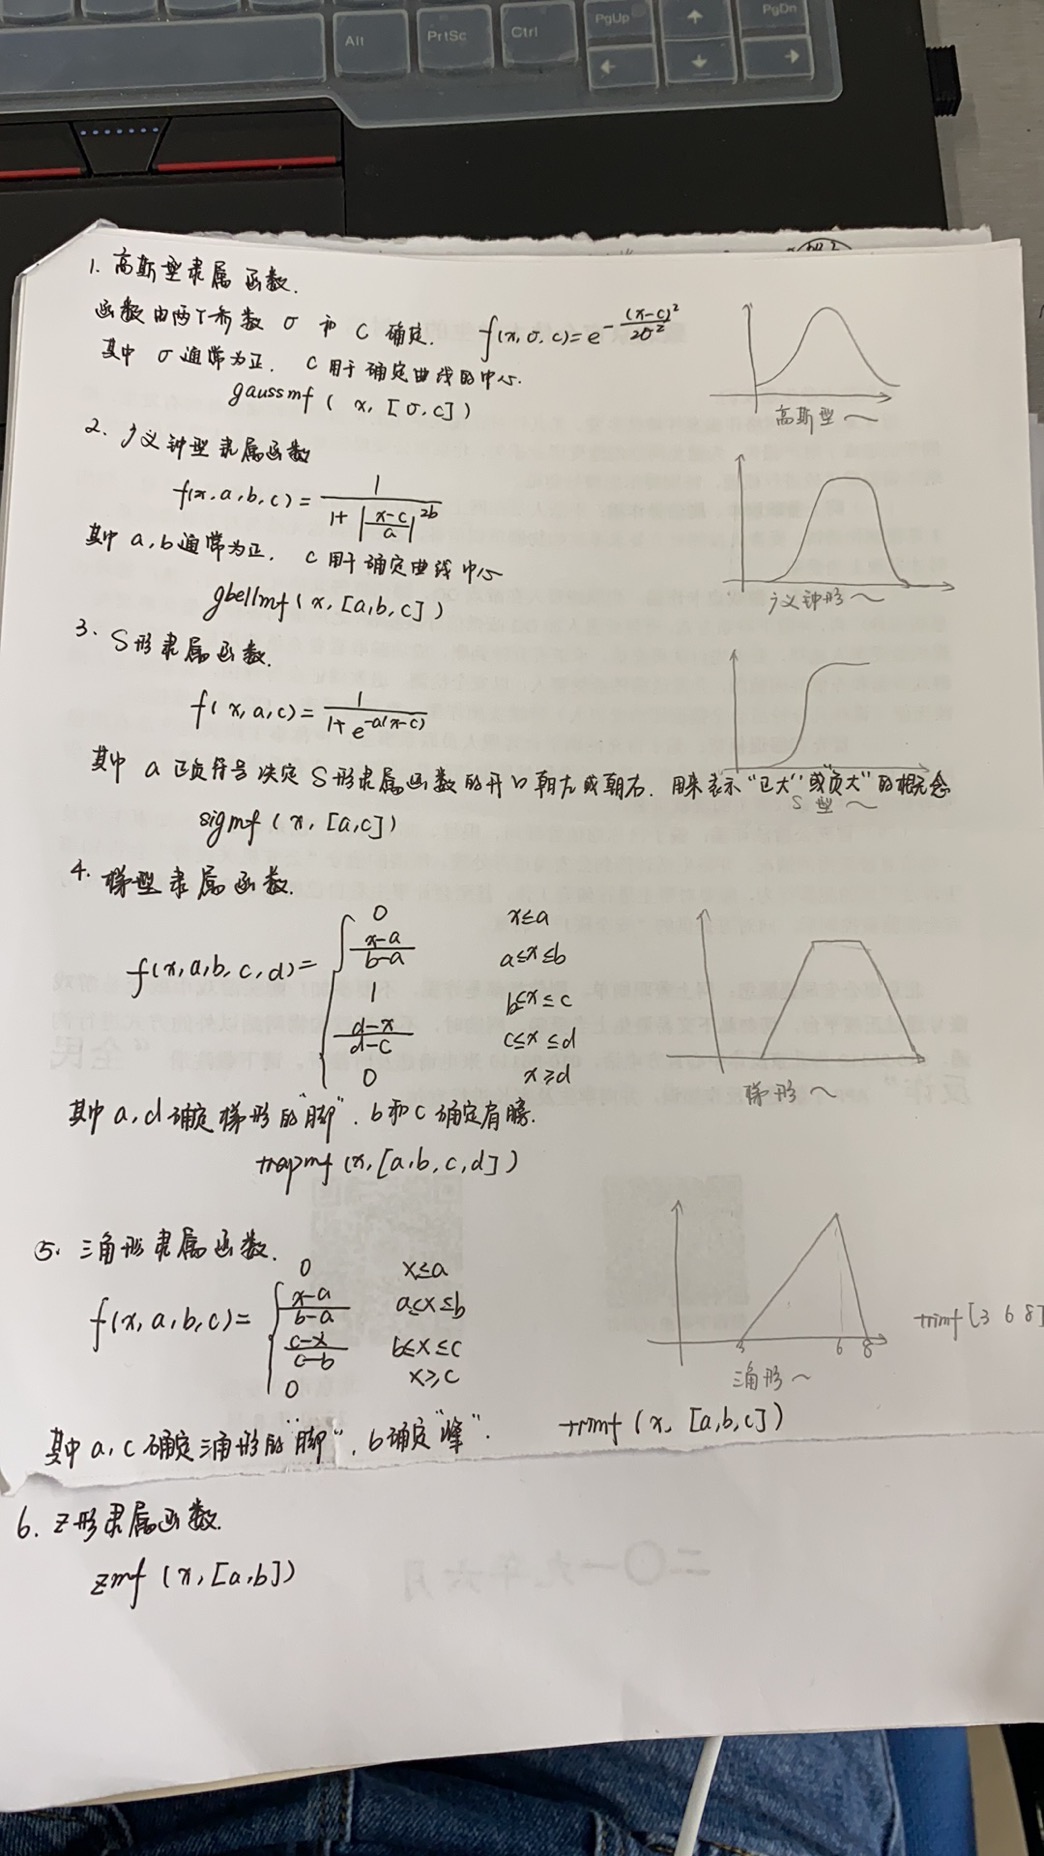 Alt
PrtSc
Ctrl
PgUp
PgDn
1. 高斯型隶属函数.
函数由两个参数 σ 和 c 确定. f(x,σ,c)=e^{-\frac{(x-c)^2}{2σ^2}}
其中 σ 通常为正. c 用于确定曲线的中心.
gaussmf ( x, [σ,c])
高斯型~
2. 广义钟型隶属函数
f(x,a,b,c)=\frac{1}{1+|\frac{x-c}{a}|^{2b}}
其中 a,b通常为正. c 用于确定曲线中心
gbellmf(x,[a,b,c])
广义钟形~
3. S形隶属函数.
f(x,a,c)=\frac{1}{1+e^{-a(x-c)}}
其中 a 正负符号决定S形隶属函数的开口朝左或朝右. 用来表示“正大”或“负大”的概念
S型~
sigmf (x, [a,c])
4. 梯型隶属函数.
0 x≤a
\frac{x-a}{b-a} a≤x≤b
f(x,a,b,c,d)=
1 b≤x≤c
\frac{d-x}{d-c} c≤x≤d
0 x≥d
梯形~
其中a,d确定梯形的“脚”. b和c确定肩膀.
trapmf (x,[a,b,c,d])
⑤. 三角形隶属函数.
0 x≤a
\frac{x-a}{b-a} a≤x≤b
f(x,a,b,c)=
\frac{c-x}{c-b} b≤x≤c
0 x≥c
3 6 8
trimf[3 6 8]
三角形~
其中a,c确定三角形的“脚”, b确定“峰”. trimf (x, [a,b,c])
6. Z形隶属函数.
zmf (x,[a,b])
二〇一九年六月